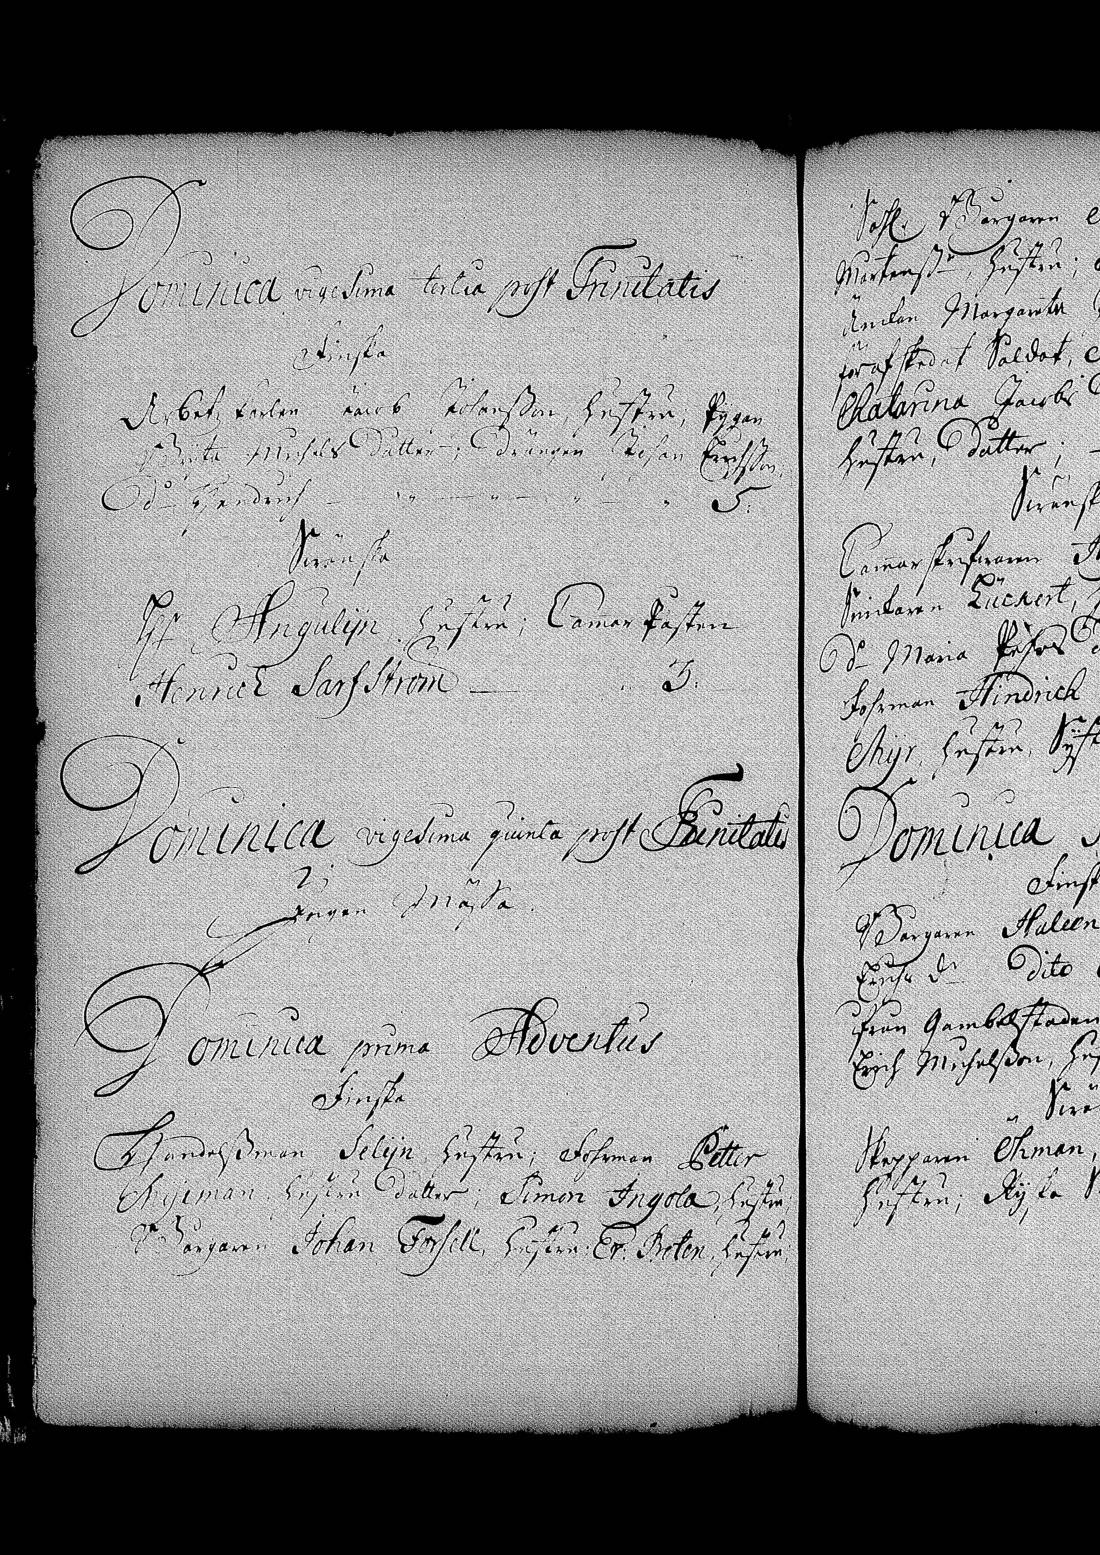 Dominica vigesima tertia post Trinitatis
Finska
Arbetz karlen Jacob Johansson, Hustru; Pygan
Brita Michels Datter; drängen Johan Erichsson,
do Hendrich — — — 5.
Swänska
H: Angulijn Hustru; Camar Påsten
Henrich Sarfström — 3.
Dominica vigesima quinta post Trinitatis
Ingen Mässa.
Dominica prima Adventus
Finska
Handelsman Selijn Hustru; Fohrman Petter
Nyman, Hustru Datter; Simon Ingola, Hustru;
Borgaren Johan Forsell, Hustru; Er: Boten, Hustru;
Sahl. Borgaren
Mårtenss Hustru;
Änckan Margareta
för afskedat Soldat,
Catarina Jacobs
Hustru, Datter;
Swänsk
Camarskrifwaren
Snickaren Lückert,
do Maria
Fohrman Hindrich
Myr, Hustru,
Dominica
Finsk
Borgaren Huleen
Erichs do Dito
från Gambelstaden
Erich Michelsson, Hu
Swä
Skepparen Öhman,
Hustru;